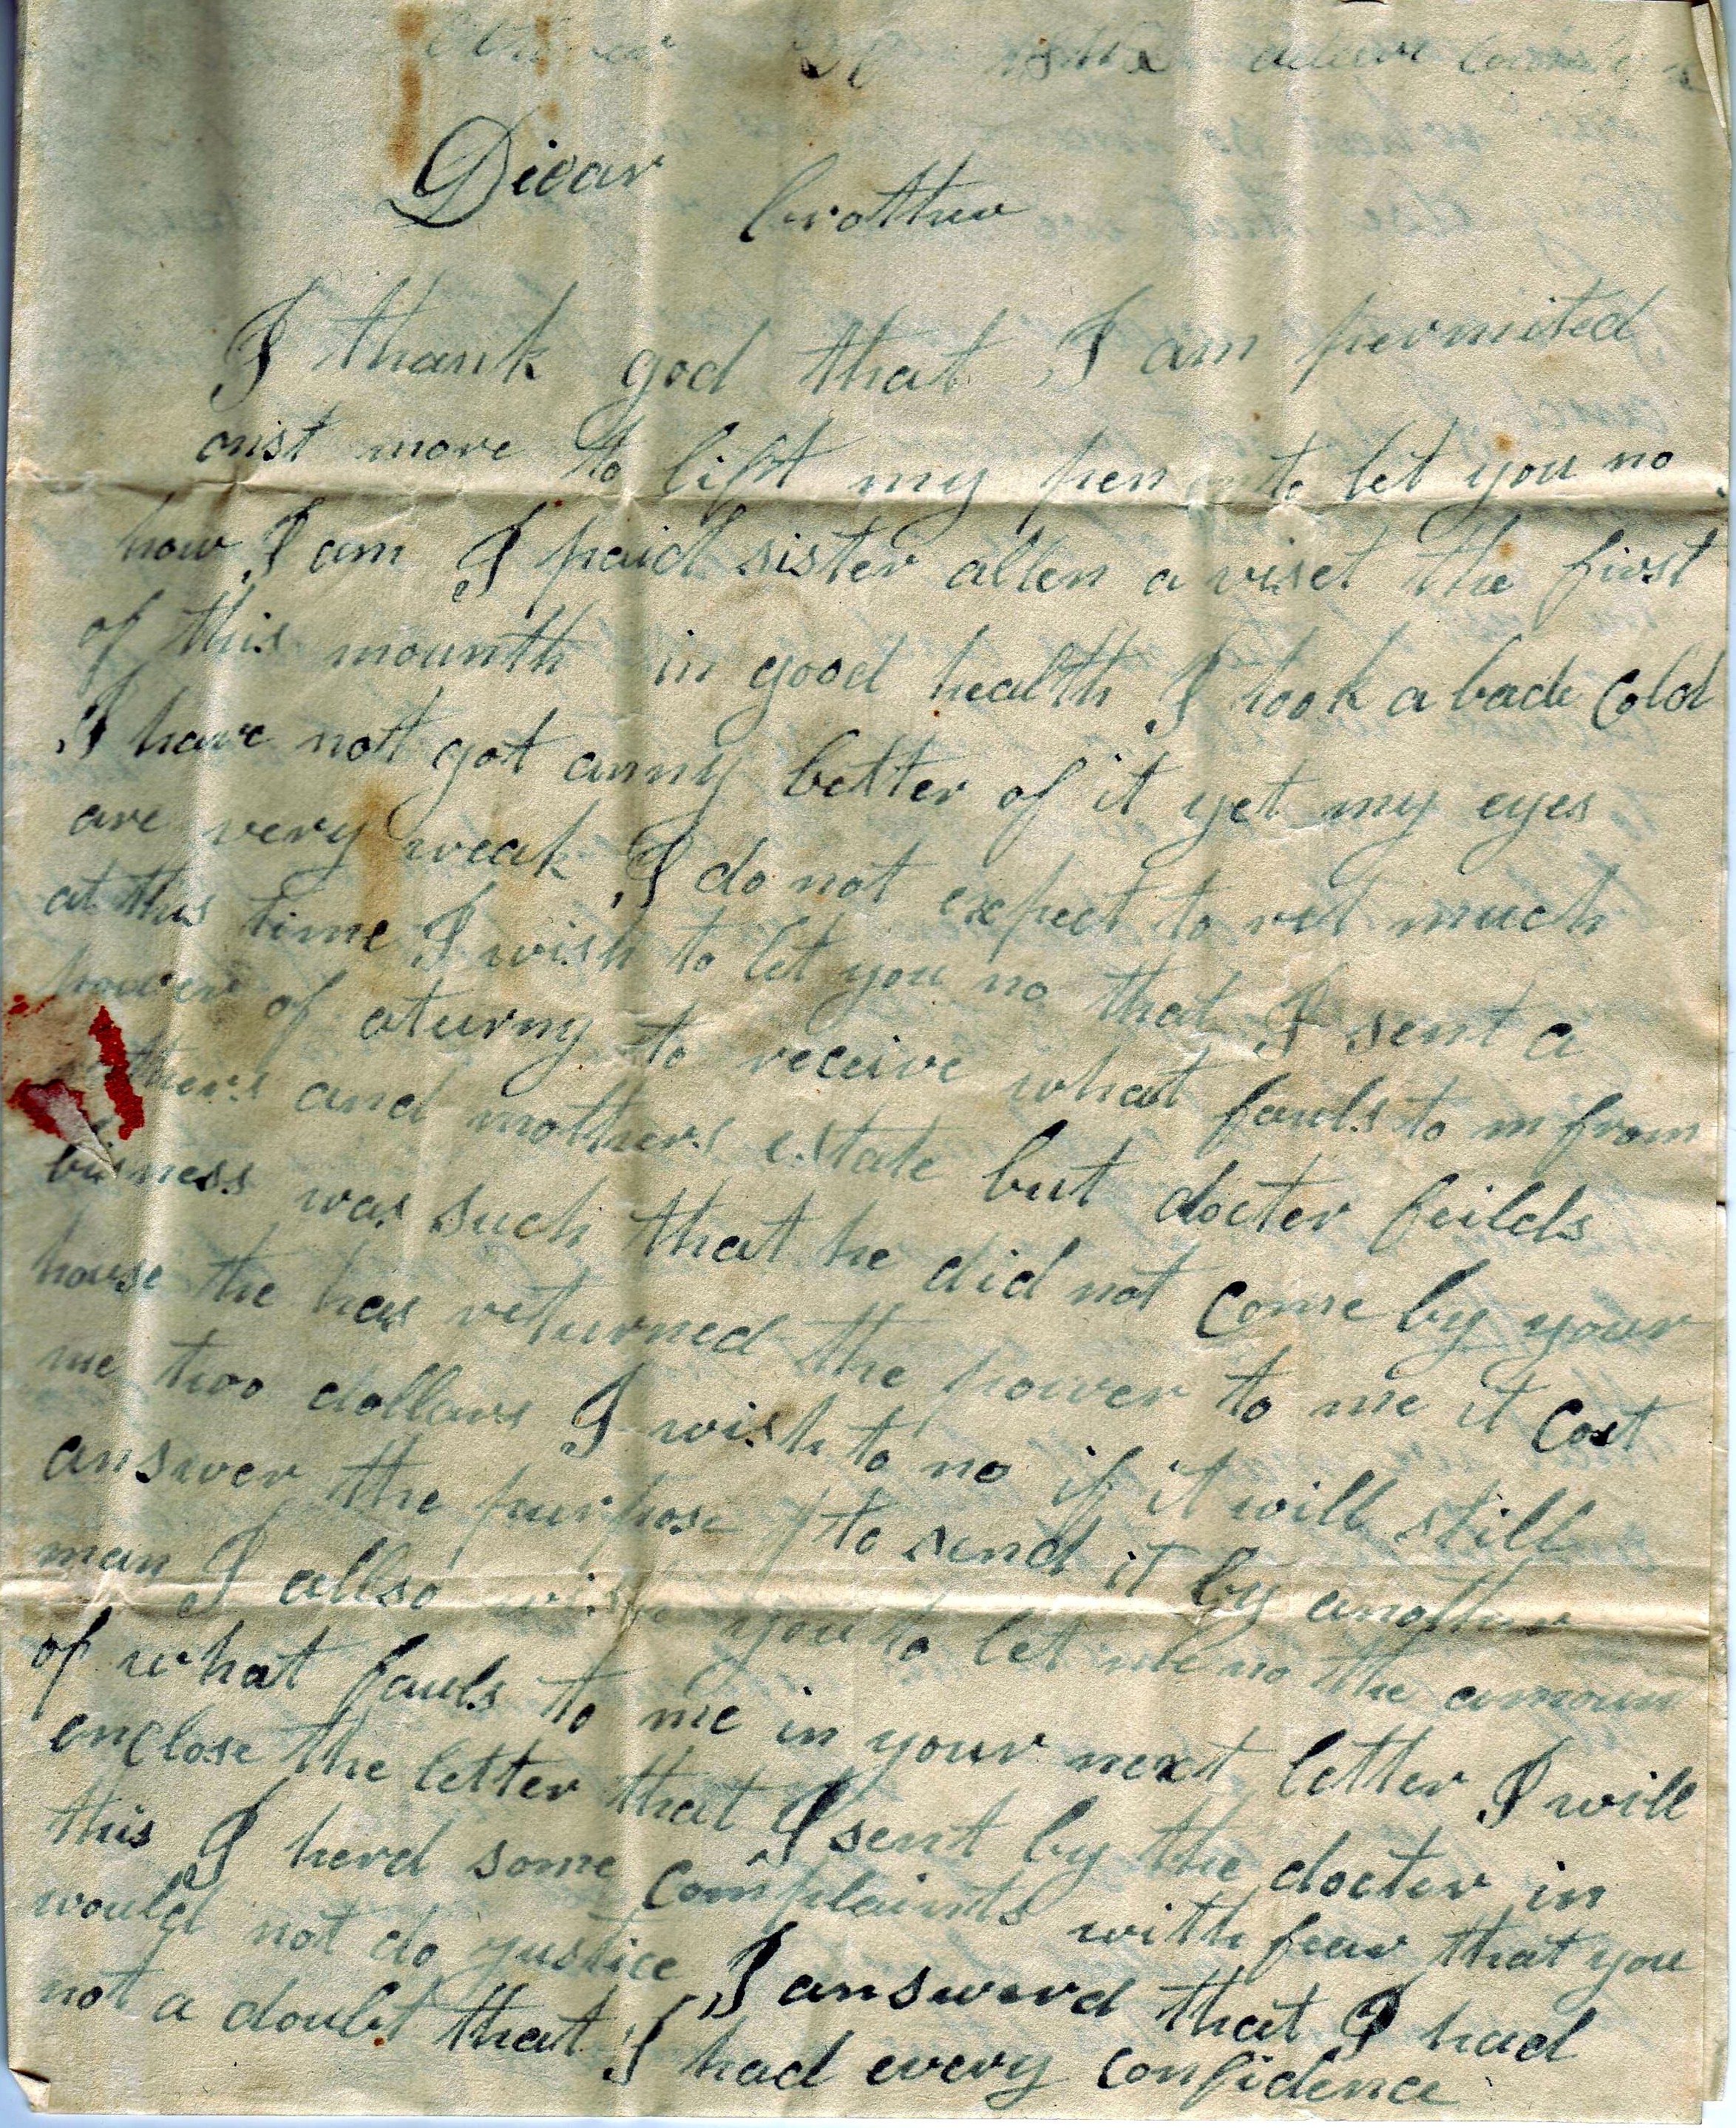 Diear
brother
I thank god that I am permited
onst more to lift my pen to let you no
how I am I paid sister allen a viset the first
of this mounth in good health I took a bade cold
I have nott got anny better of it yet my eyes
are very weak I do not expect to rit much
at this time I wish to let you no that I sent a
power of aturny to receive what fauls to m from
thers and mothers estate but docter feilds
busness was such that he did not come by your
house he has returned the power to me it cost
me two dollars I wish to no if it will still
answer the purpose to send it by another
man I allso wish you to let me no the amoun
of what fauls to me in your next letter I will
enclose the letter that I sent by the docter in
this I herd some complaints with fear that you
would not do justice I answerd that I had
not a doubt that I had every confidence